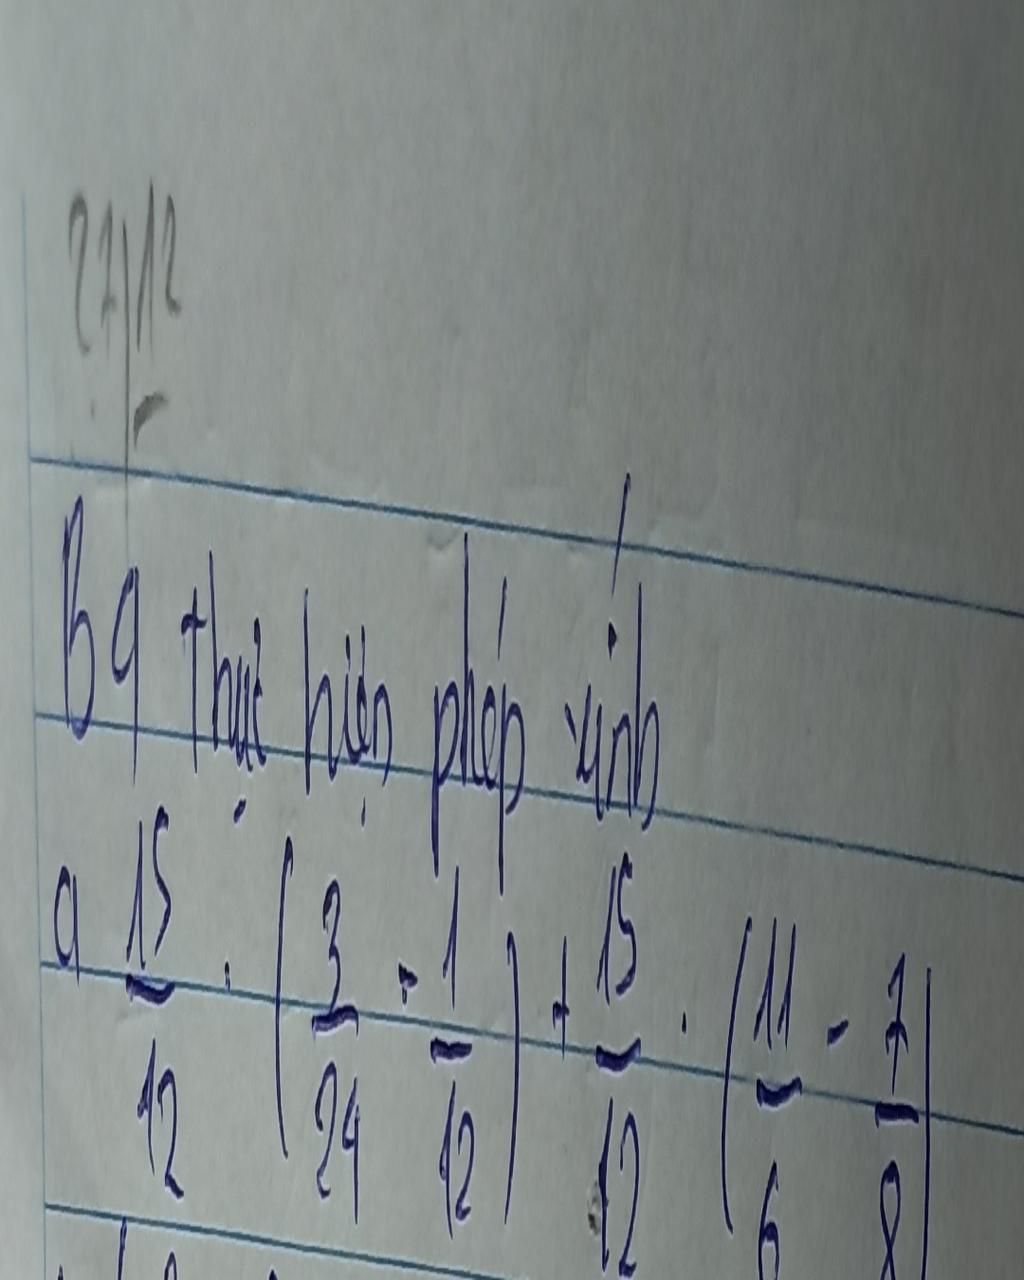 27/12
B9 thực hiện phép tính
a 15/12 . (3/24 - 1/12) + 15/12 . (11/6 - 7/8)